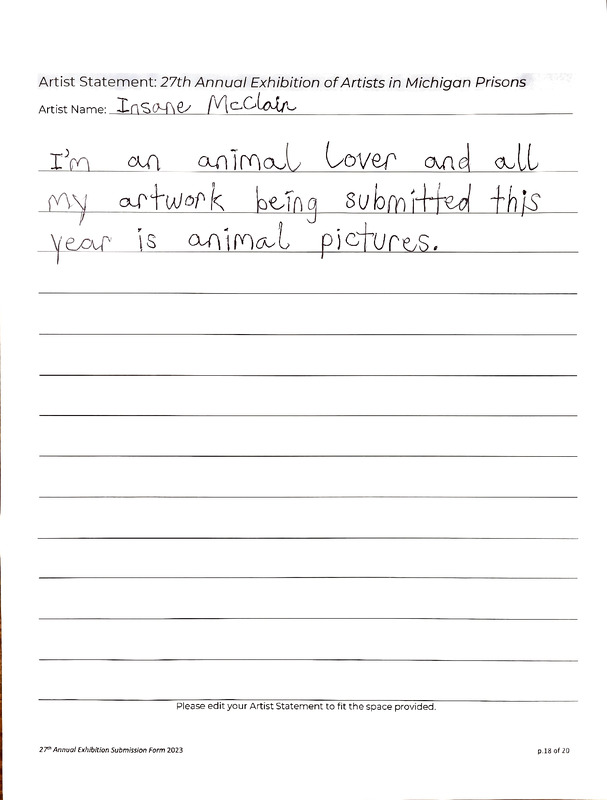 Artist Statement: 27th Annual Exhibition of Artists in Michigan Prisons
Artist Name: Insane McClain
I'm an animal lover and all
my artwork being submitted this
year is animal pictures.
Please edit your Artist Statement to fit the space provided.
27th Annual Exhibition Submission Form 2023
p.18 of 20